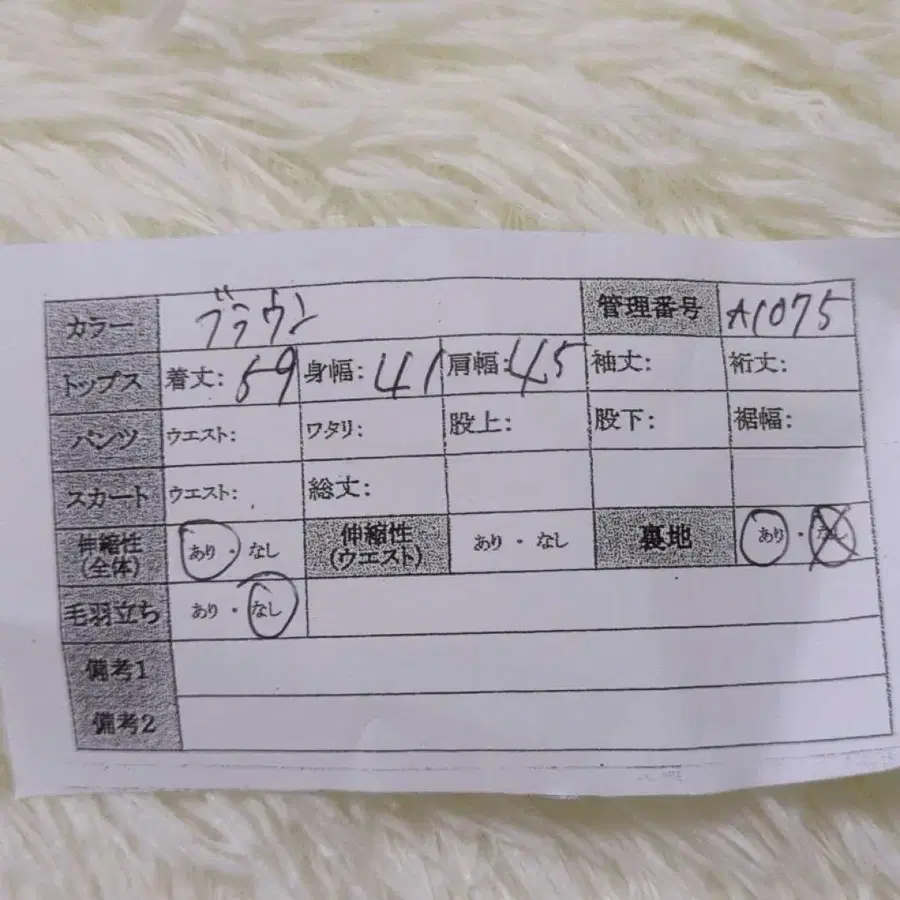 カラー ブラウン 管理番号 A1075
トップス 着丈: 59 身幅: 41 肩幅: 45 袖丈: 裄丈:
パンツ ウエスト: ワタリ: 股上: 股下: 裾幅:
スカート ウエスト: 総丈:
伸縮性(全体) あり・なし 伸縮性(ウエスト) あり・なし 裏地 あり・なし
毛羽立ち あり・なし
備考1
備考2